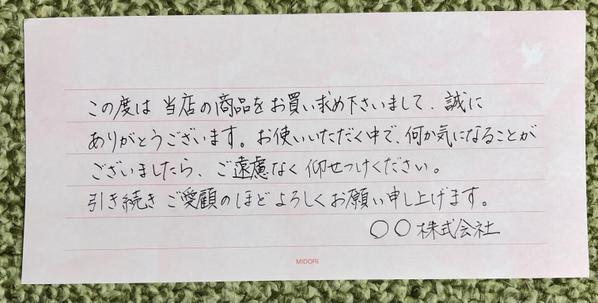 この度は当店の商品をお買い求め下さいまして、誠に
ありがとうございます。お使いいただく中で、何か気になることが
ございましたら、ご遠慮なく仰せつけください。
引き続きご愛顧のほどよろしくお願い申し上げます。
〇〇株式会社
MIDORI